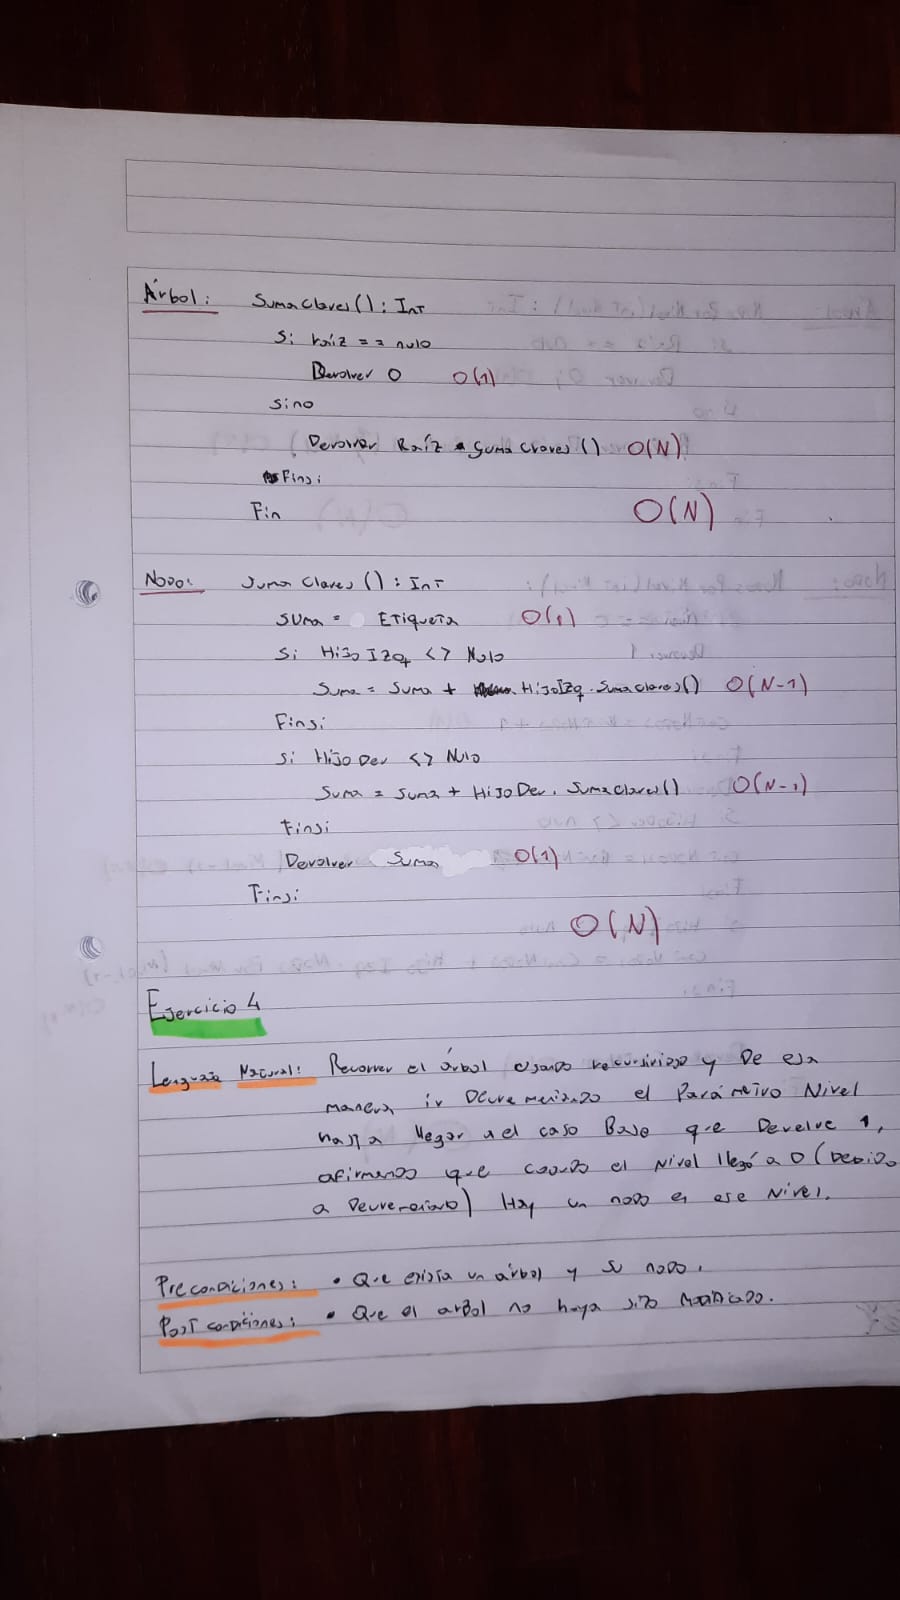 Árbol: SumaClaves(): Int
Si raíz == nulo
Devolver 0 O(1)
Sino
Devolver Raíz . SumaClaves() O(N)
Finsi
Fin O(N)
Nodo: SumaClaves(): Int
Suma = Etiqueta O(1)
Si HijoIzq <> Nulo
Suma = Suma + HijoIzq.SumaClaves() O(N-1)
Finsi
Si HijoDer <> Nulo
Suma = Suma + HijoDer.SumaClaves() O(N-1)
Finsi
Devolver Suma O(1)
Finsi
O(N)
Ejercicio 4
Lenguaje Natural: Recorrer el árbol usando recursividad y De esa
manera ir Decrementando el Parámetro Nivel
hasta llegar a el caso Base que Develve 1,
afirmando que cuando el Nivel llegó a 0 (Debido
a Decrementado) Hay un nodo en ese Nivel.
Precondiciones: • Que exista un árbol y su nodo.
Postcondiciones: • Que el arbol no haya sido Modificado.